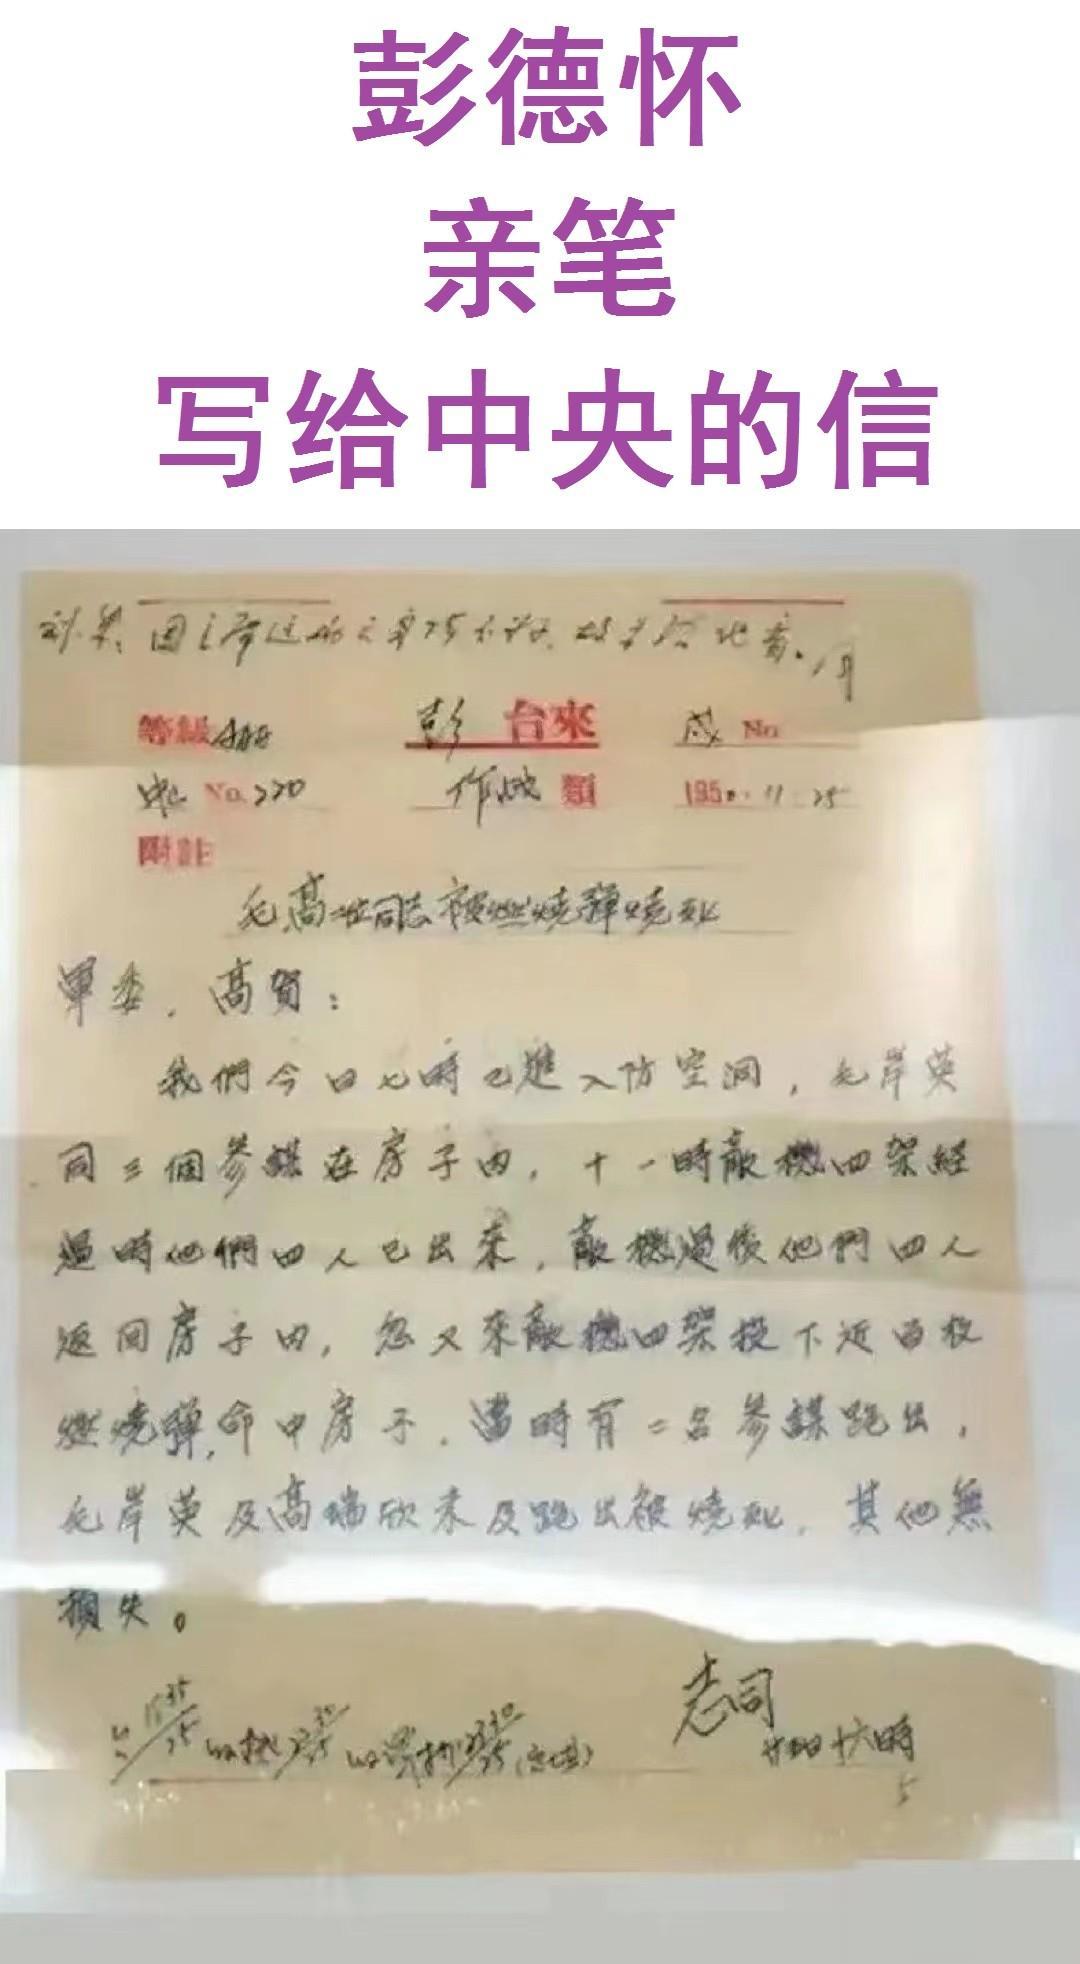 彭德怀
亲笔
写给中央的信
等級 彭 台來 No
No.220 作 類 1950.11.25
附註
毛、高二位同志被燃燒彈燒死
軍委，高賀：
我們今日七時已進入防空洞，毛岸英
同三個參謀在房子内，十一時敵機四架經
過時他們四人已出來，敵機過後他們四人
返回房子内，忽又來敵機四架投下近百枚
燃燒彈，命中房子，當時有二名參謀跑出，
毛岸英及高瑞欣未及跑出被燒死，其他無
損失。
志司
十六時